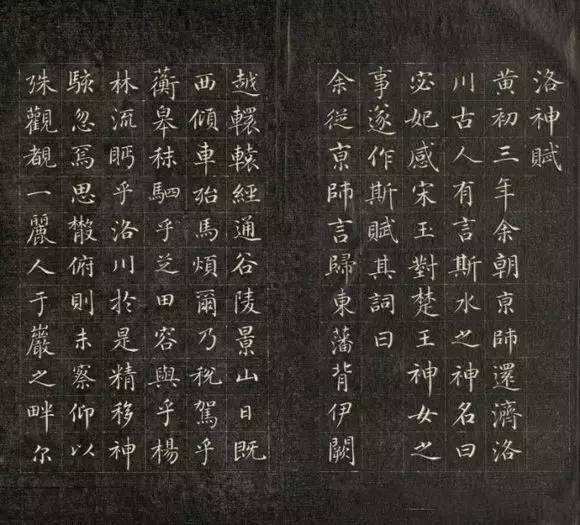 洛神賦
黄初三年余朝亰師還濟洛
川古人有言斯水之神名曰
宓妃感宋玉對楚王神女之
事遂作斯賦其詞曰
余從亰師言歸東藩背伊闕
越轘轅經通谷陵景山日既
西傾車殆馬煩爾乃税駕乎
蘅皋秣駟乎芝田容與乎楊
林流眄乎洛川於是精移神
駭忽焉思散俯則未察仰以
殊觀覩一麗人于巖之畔尔